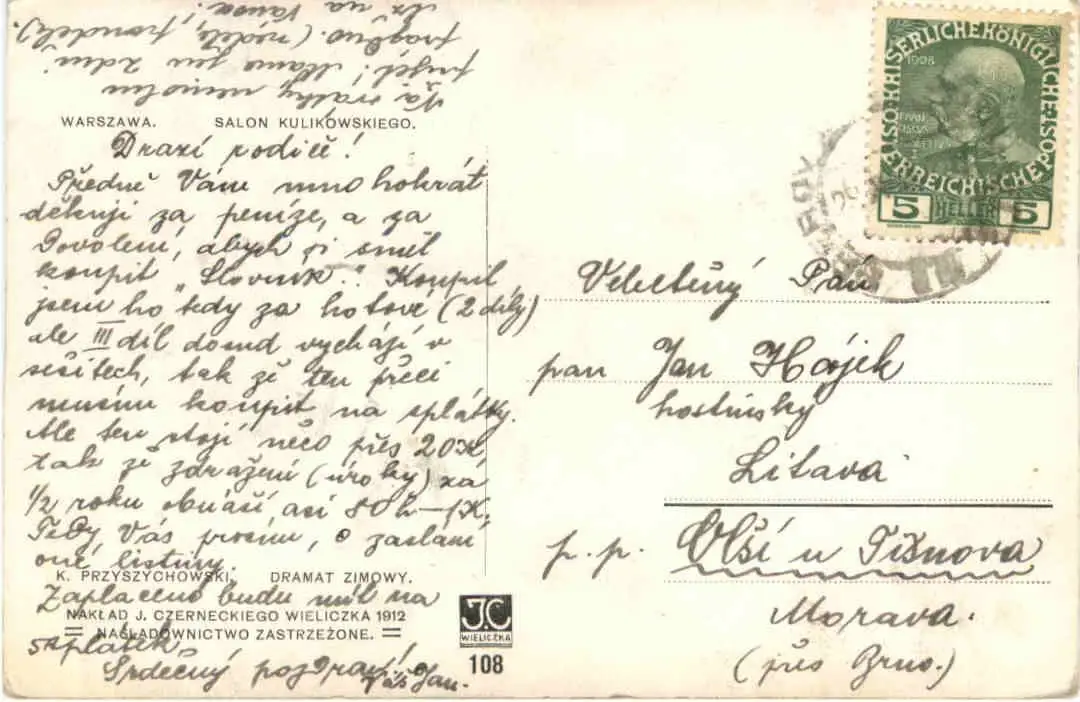 Na svátky nemohu
přijet! Máme jen 2 dni
prázdno. (neděle, pondělí).
WARSZAWA. SALON KULIKOWSKIEGO.
Drazí rodiče!
Předně Vám mnohokrát
děkuji za peníze, a za
dovolení, abych si směl
koupit „Slovník". Koupil
jsem ho tedy za hotové (2 díly)
ale III díl dosud vychází v
sešitech, tak že ten přeci
musím koupit na splátky.
Ale ten stojí něco přes 20K
tak že zdražení (úroky) za
1/2 roku obnáší asi 80h–1K.
Tedy Vás prosím, o zaslání
oné listiny.
K. PRZYSZYCHOWSKI. DRAMAT ZIMOWY.
Zaplaceno budu mít na
NAKŁAD J. CZERNECKIEGO WIELICZKA 1912
= NAŚLADOWNICTWO ZASTRZEŻONE. =
splátek
Srdečný pozdrav!
Váš Jan.
JC
WIELICZKA
108
KAISERLICHE KÖNIGLICHE
ÖSTERREICHISCHE POST
1908
5 HELLER 5
Velectěný Pán
pan Jan Hájek
hostinský
Litava
p. p. Olší u Tišnova
Morava.
(přes Brno.)